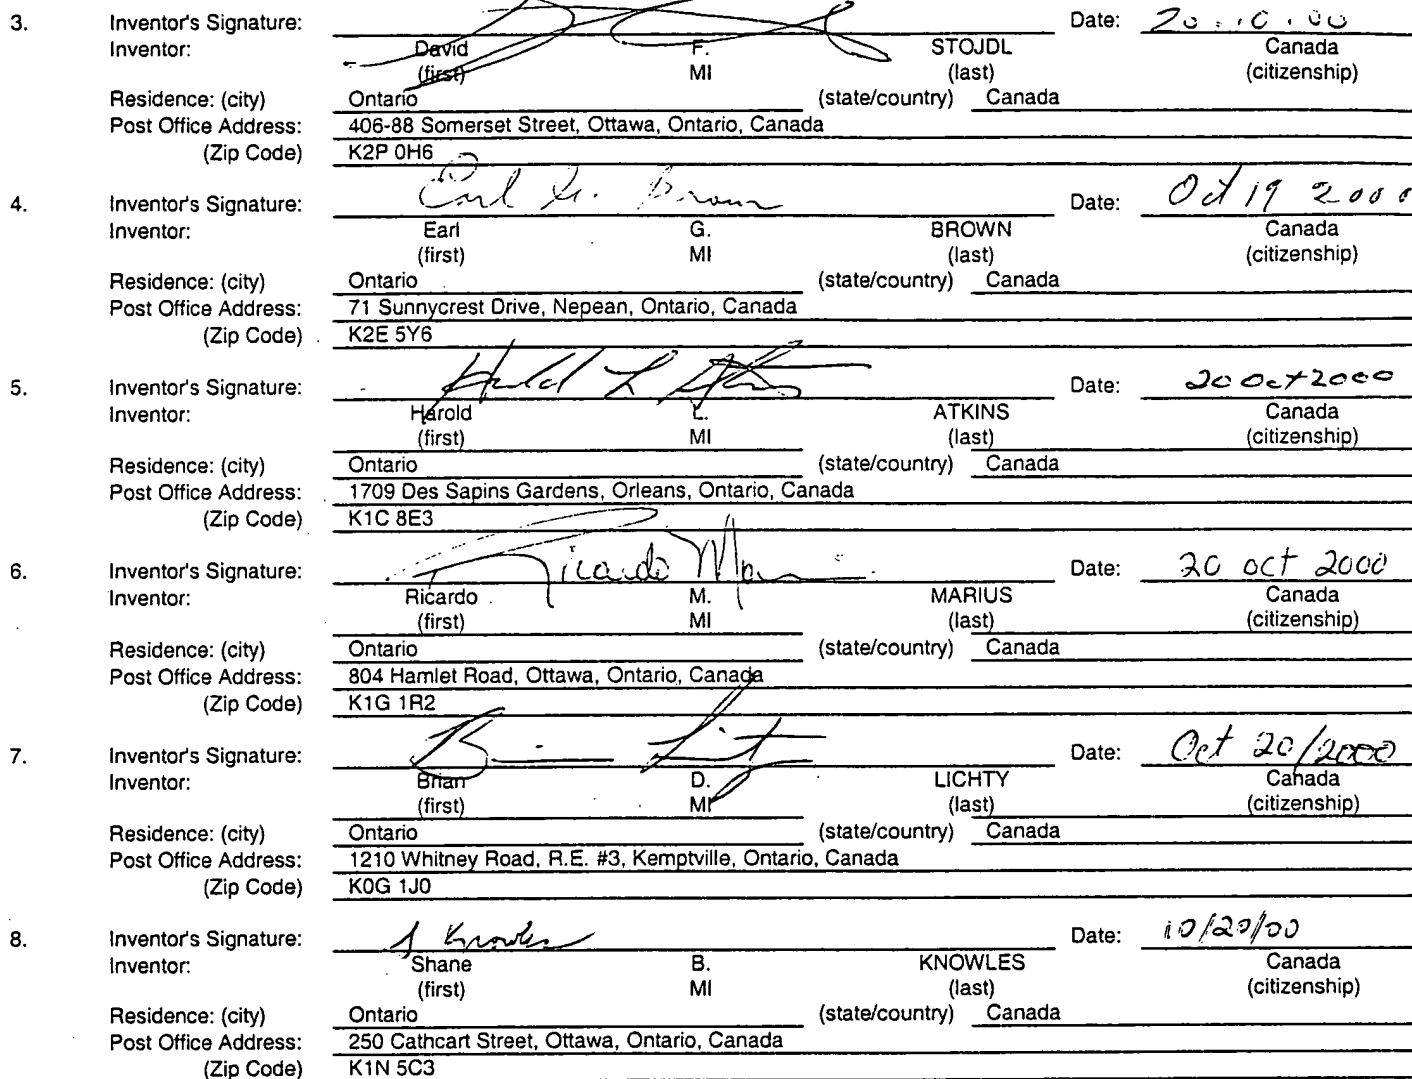 3. Inventor's Signature: Date: 20.10.00
Inventor: David F. STOJDL Canada
(first) MI (last) (citizenship)
Residence: (city) Ontario (state/country) Canada
Post Office Address: 406-88 Somerset Street, Ottawa, Ontario, Canada
(Zip Code) K2P 0H6
4. Inventor's Signature: Earl G. Brown Date: Oct 19 2000
Inventor: Earl G. BROWN Canada
(first) MI (last) (citizenship)
Residence: (city) Ontario (state/country) Canada
Post Office Address: 71 Sunnycrest Drive, Nepean, Ontario, Canada
(Zip Code) K2E 5Y6
5. Inventor's Signature: Harold L Atkins Date: 20 Oct 2000
Inventor: Harold L. ATKINS Canada
(first) MI (last) (citizenship)
Residence: (city) Ontario (state/country) Canada
Post Office Address: 1709 Des Sapins Gardens, Orleans, Ontario, Canada
(Zip Code) K1C 8E3
6. Inventor's Signature: Ricardo Date: 20 oct 2000
Inventor: Ricardo M. MARIUS Canada
(first) MI (last) (citizenship)
Residence: (city) Ontario (state/country) Canada
Post Office Address: 804 Hamlet Road, Ottawa, Ontario, Canada
(Zip Code) K1G 1R2
7. Inventor's Signature: Date: Oct 20/2000
Inventor: Brian D. LICHTY Canada
(first) MI (last) (citizenship)
Residence: (city) Ontario (state/country) Canada
Post Office Address: 1210 Whitney Road, R.E. #3, Kemptville, Ontario, Canada
(Zip Code) K0G 1J0
8. Inventor's Signature: S Knowles Date: 10/20/00
Inventor: Shane B. KNOWLES Canada
(first) MI (last) (citizenship)
Residence: (city) Ontario (state/country) Canada
Post Office Address: 250 Cathcart Street, Ottawa, Ontario, Canada
(Zip Code) K1N 5C3